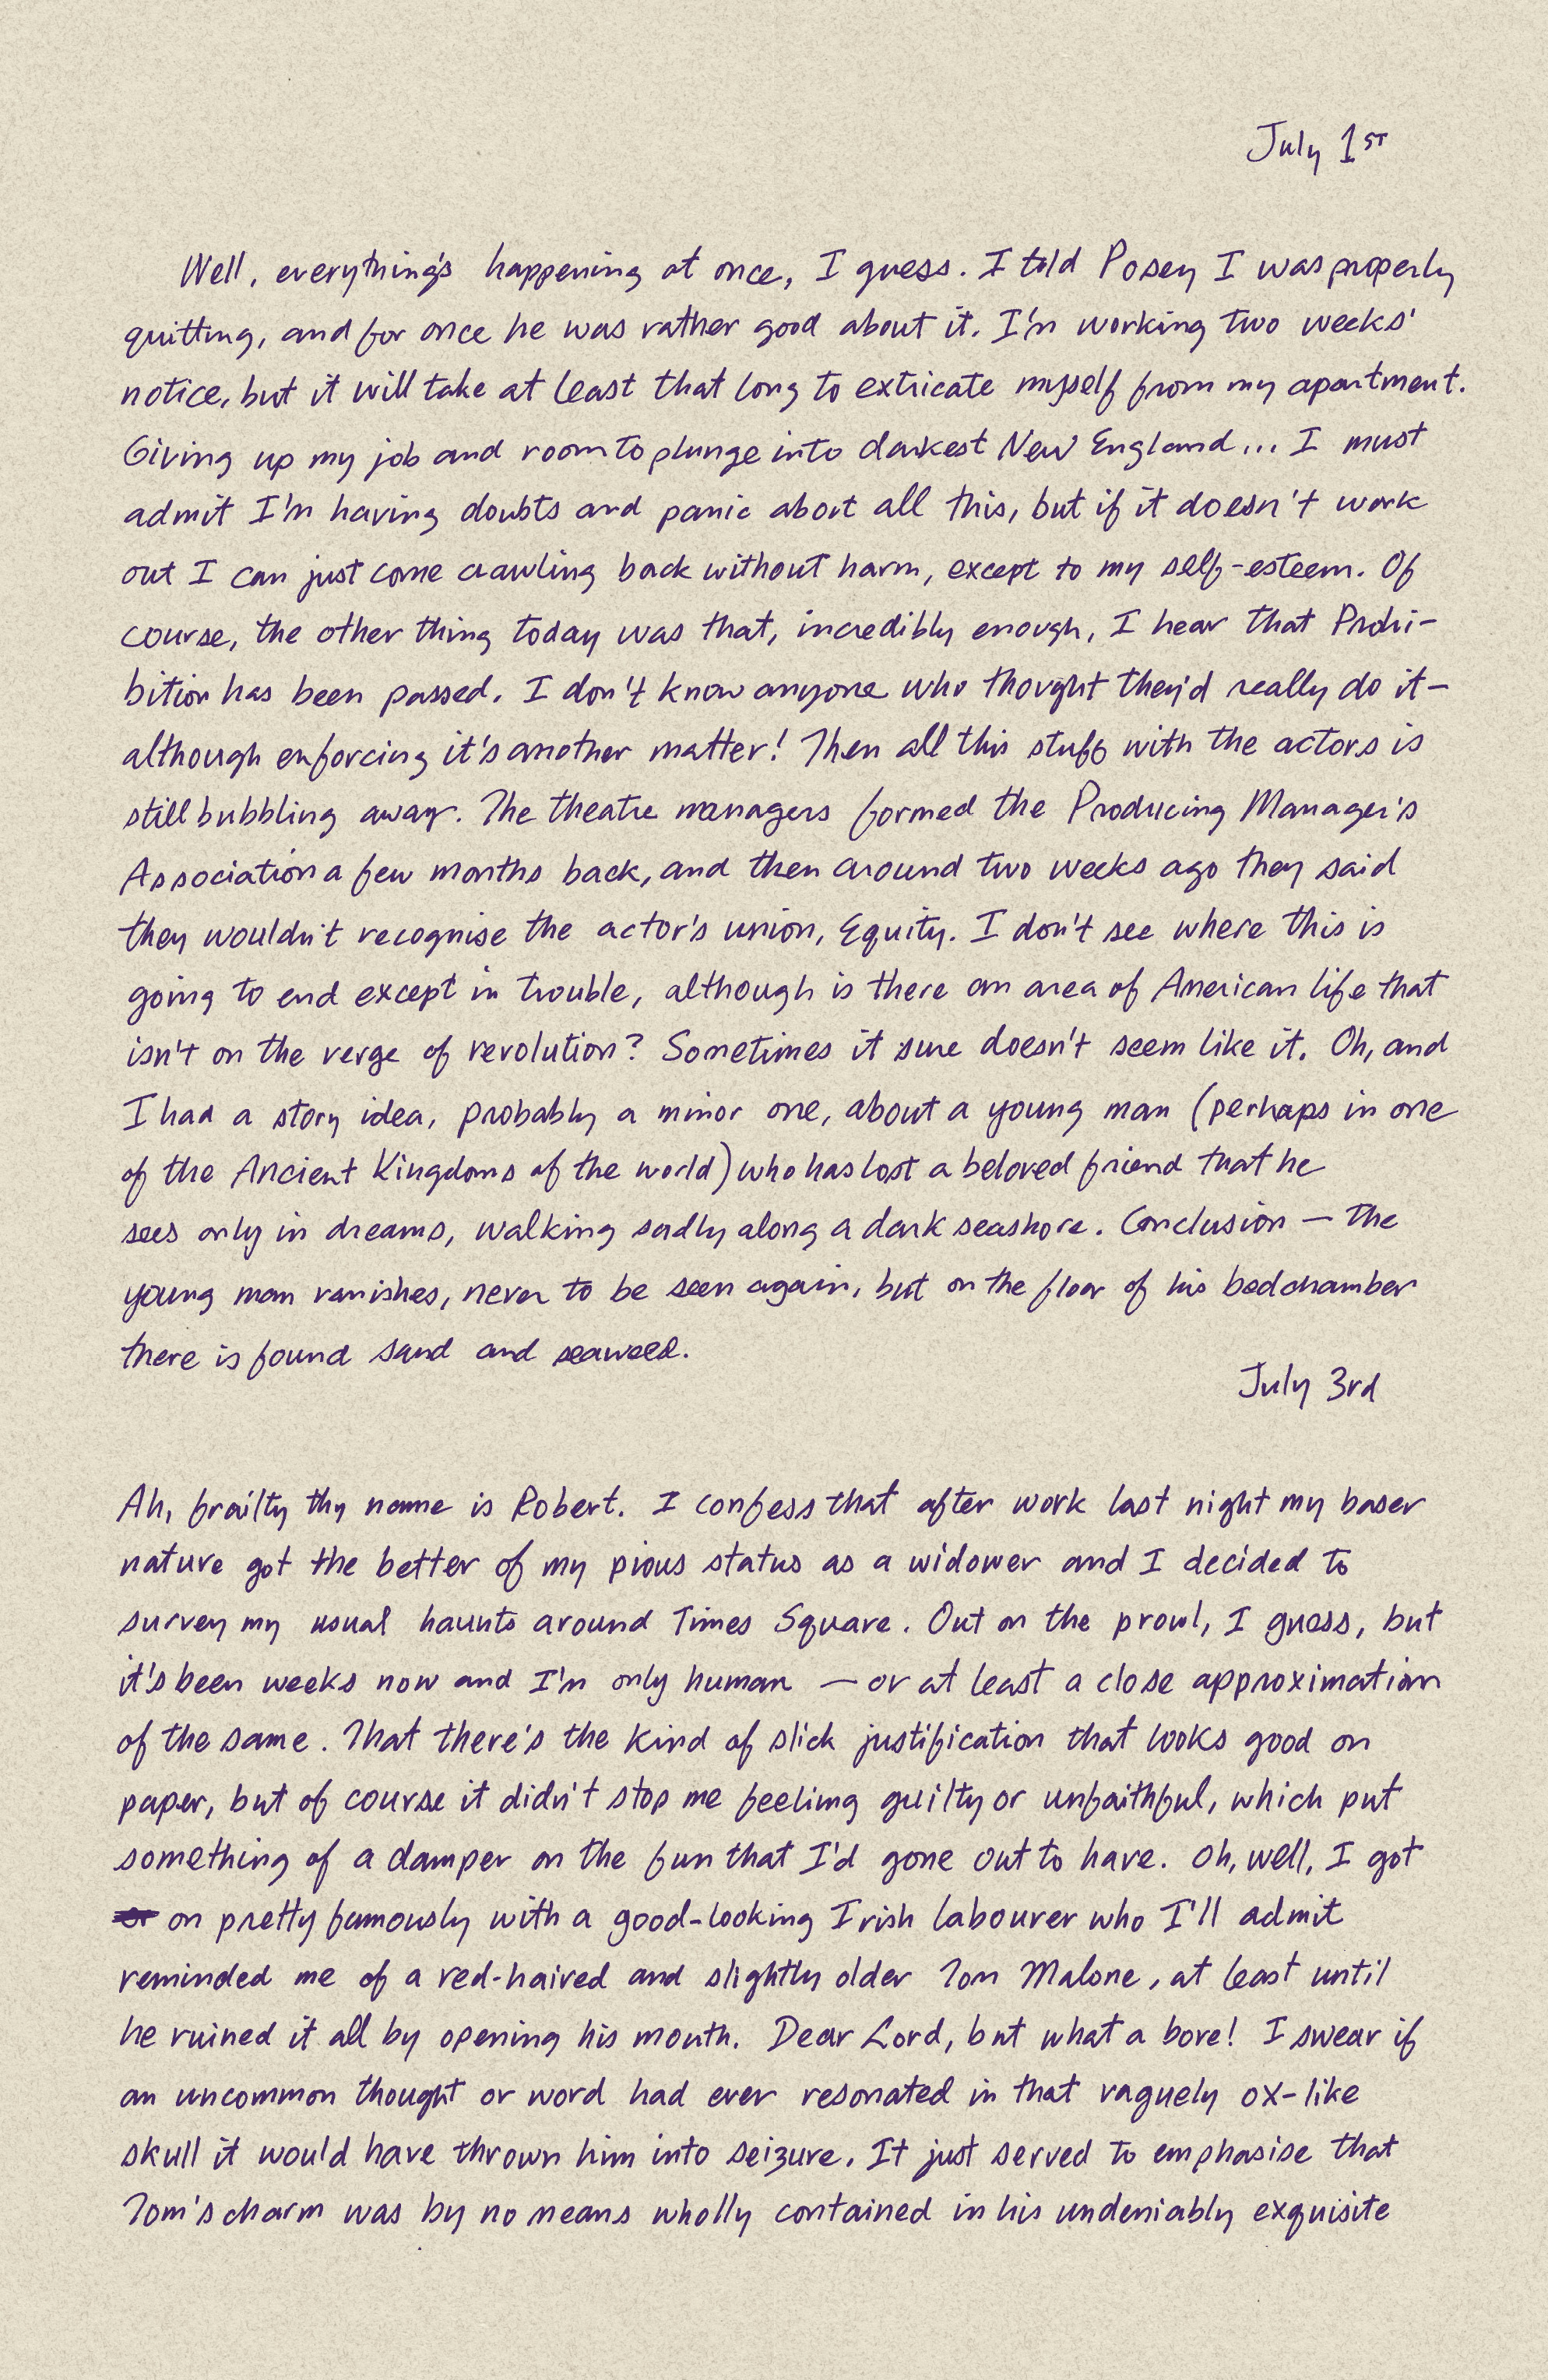 July 1ST
Well, everything's happening at once, I guess. I told Posey I was properly
quitting, and for once he was rather good about it. I'm working two weeks'
notice, but it will take at least that long to extricate myself from my apartment.
Giving up my job and room to plunge into darkest New England... I must
admit I'm having doubts and panic about all this, but if it doesn't work
out I can just come crawling back without harm, except to my self-esteem. Of
course, the other thing today was that, incredibly enough, I hear that Prohi-
bition has been passed. I don't know anyone who thought they'd really do it—
although enforcing it's another matter! Then all this stuff with the actors is
still bubbling away. The theatre managers formed the Producing Manager's
Association a few months back, and then around two weeks ago they said
they wouldn't recognise the actor's union, Equity. I don't see where this is
going to end except in trouble, although is there an area of American life that
isn't on the verge of revolution? Sometimes it sure doesn't seem like it. Oh, and
I had a story idea, probably a minor one, about a young man (perhaps in one
of the Ancient Kingdoms of the world) who has lost a beloved friend that he
sees only in dreams, walking sadly along a dark seashore. Conclusion — the
young man vanishes, never to be seen again, but on the floor of his bedchamber
there is found sand and seaweed.
July 3rd
Ah, frailty thy name is Robert. I confess that after work last night my baser
nature got the better of my pious status as a widower and I decided to
survey my usual haunts around Times Square. Out on the prowl, I guess, but
it's been weeks now and I'm only human — or at least a close approximation
of the same. That there's the kind of slick justification that looks good on
paper, but of course it didn't stop me feeling guilty or unfaithful, which put
something of a damper on the fun that I'd gone out to have. Oh, well, I got
on pretty famously with a good-looking Irish labourer who I'll admit
reminded me of a red-haired and slightly older Tom Malone, at least until
he ruined it all by opening his mouth. Dear Lord, but what a bore! I swear if
an uncommon thought or word had ever resonated in that vaguely ox-like
skull it would have thrown him into seizure. It just served to emphasise that
Tom's charm was by no means wholly contained in his undeniably exquisite